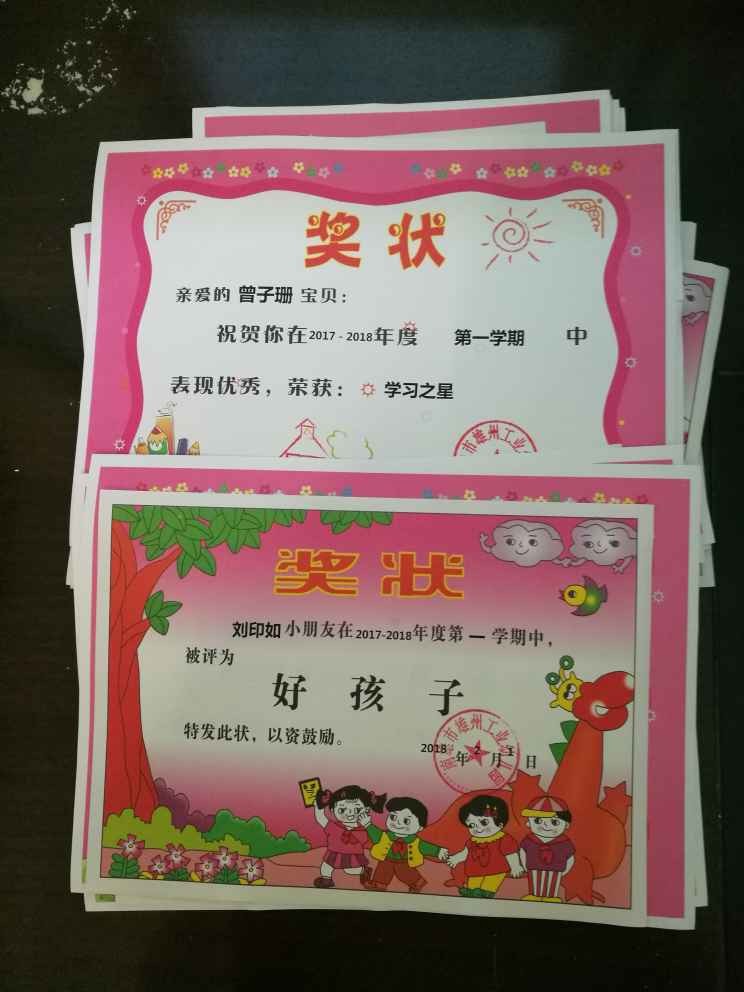 奖状
亲爱的 曾子珊 宝贝：
祝贺你在2017-2018年度 第一学期 中
表现优秀，荣获： 学习之星
市雄州工业
奖状
刘印如 小朋友在2017-2018年度第 一 学期中，
被评为
好孩子
特发此状，以资鼓励。
2018 年 2 月 1 日
市雄州工业